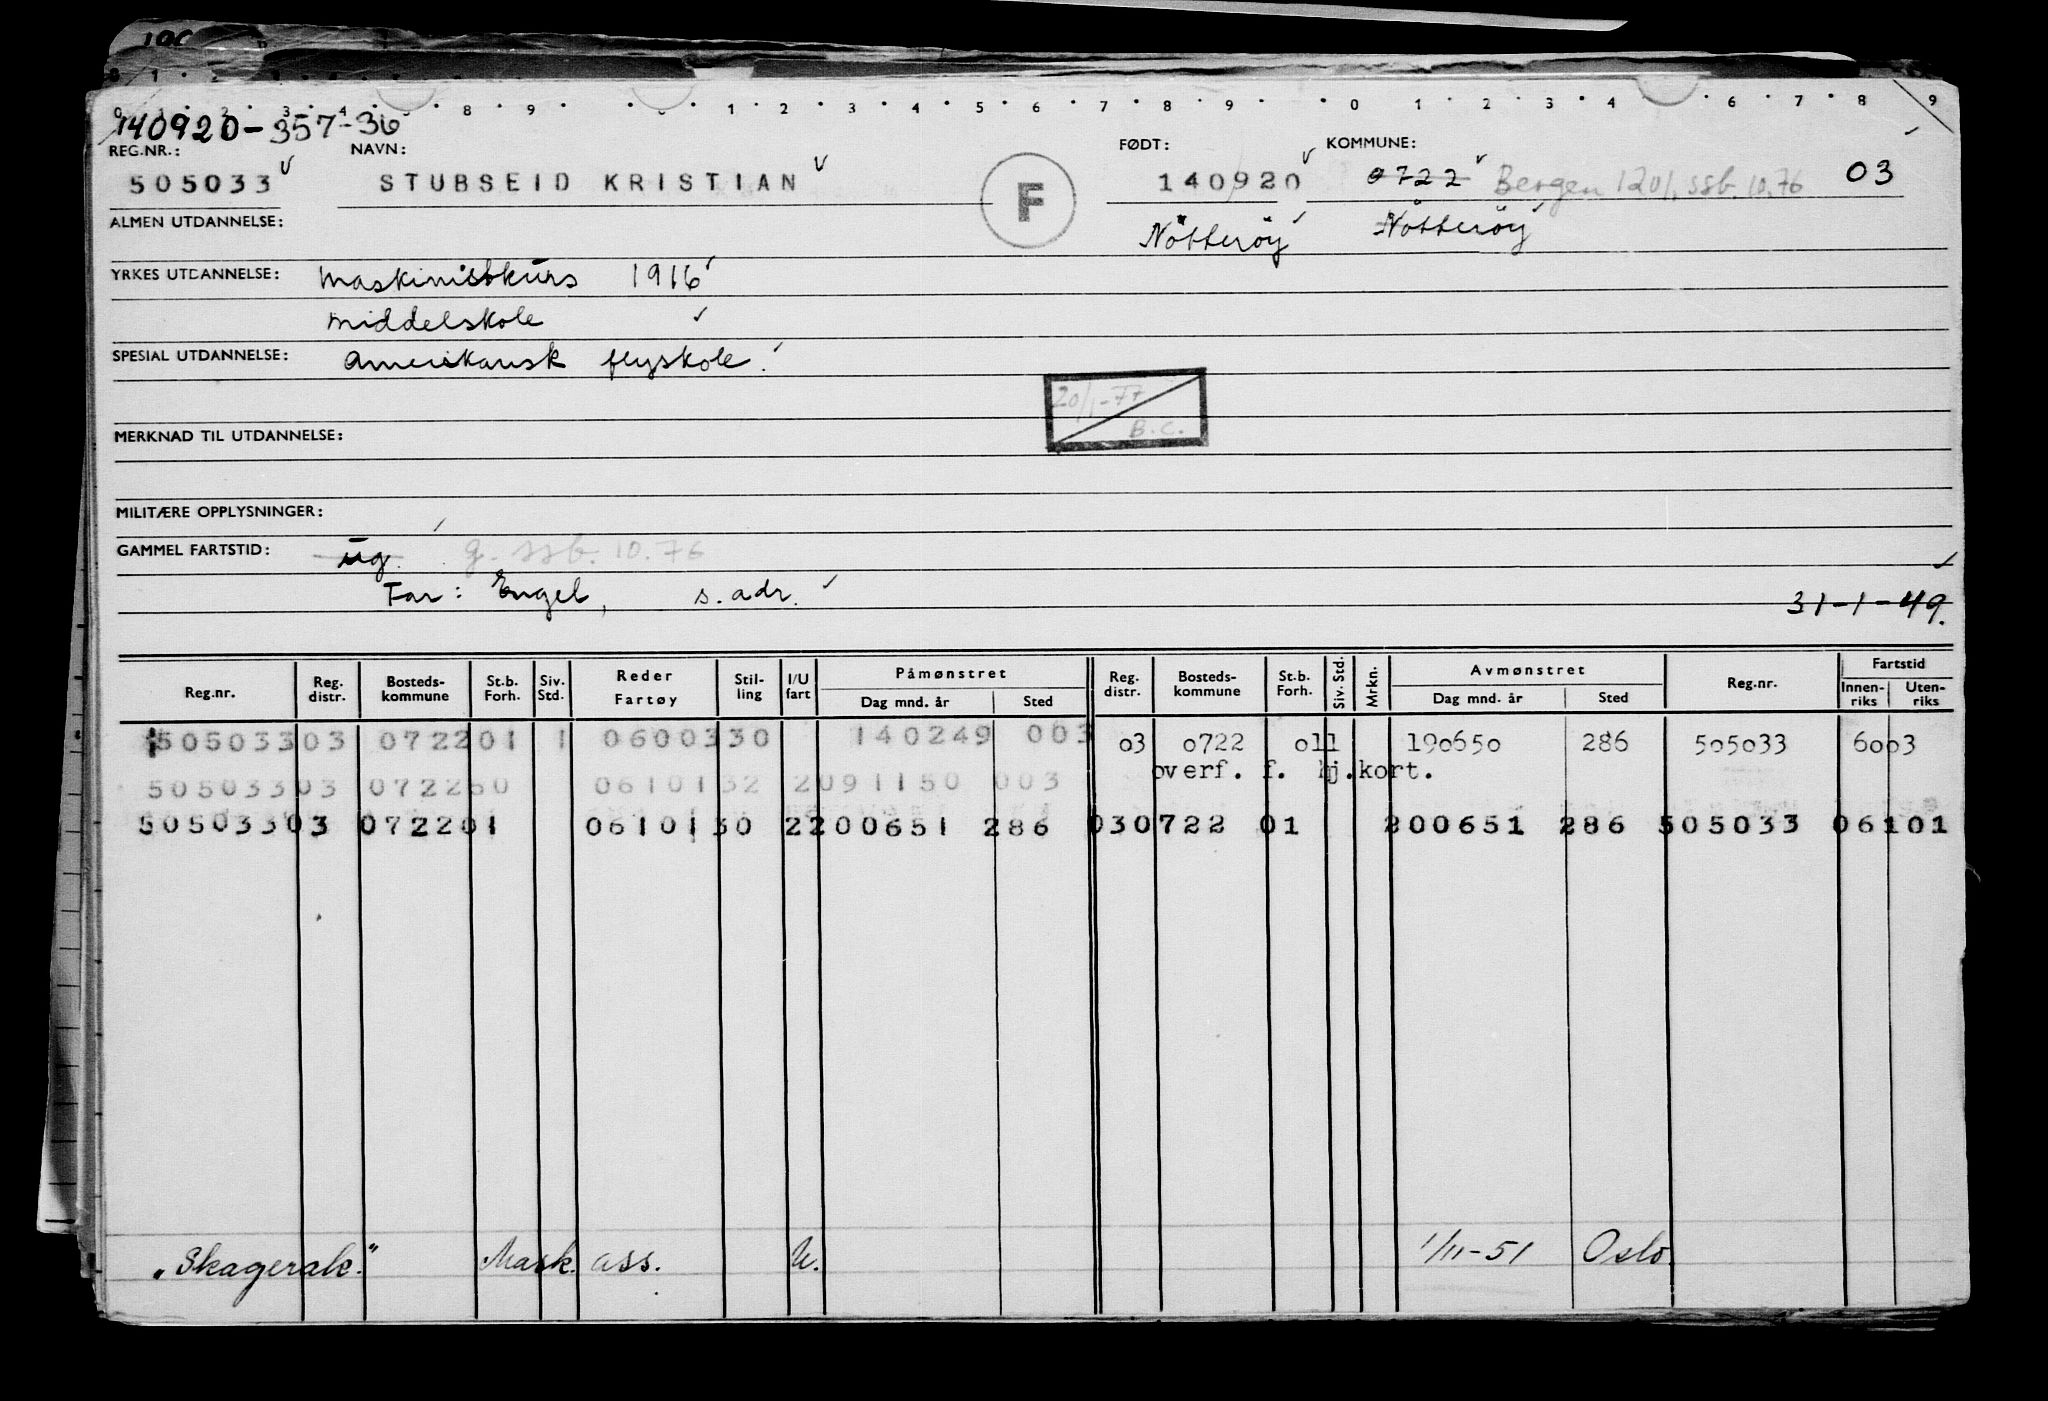 140920-357-36
REG.NR.: NAVN: FØDT: KOMMUNE:
505033 STUBSEID KRISTIAN F 140920 0722 Bergen 1201, ssb. 10.76 03
ALMEN UTDANNELSE: Nötteröy Nötteröy
YRKES UTDANNELSE: Maskinistkurs 1916
Middelskole
SPESIAL UTDANNELSE: Amerikansk flyskole.
20/1-77
B.C.
MERKNAD TIL UTDANNELSE:
MILITÆRE OPPLYSNINGER:
GAMMEL FARTSTID: ug. g. ssb. 10.76
Far: Engel, s. adr. 31-1-49.
Reg.nr. Reg. distr. Bosteds-kommune St.b. Forh. Siv. Std. Reder Fartøy Stil-ling I/U fart Påmønstret Dag mnd. år Sted Reg. distr. Bosteds-kommune St.b. Forh. Siv. Std. Mrkn. Avmønstret Dag mnd. år Sted Reg.nr. Fartstid Innen-riks Uten-riks
505033 03 0722 01 1 0600330 140249 003 03 0722 011 190650 286 505033 6003
overf. f. hj.kort.
505033 03 0722 60 0610132 2 091150 003
505033 03 0722 01 0610130 2 200651 286 03 0722 01 200651 286 505033 06101
"Skagerak." Mask. ass. U. 1/11-51 Oslo.